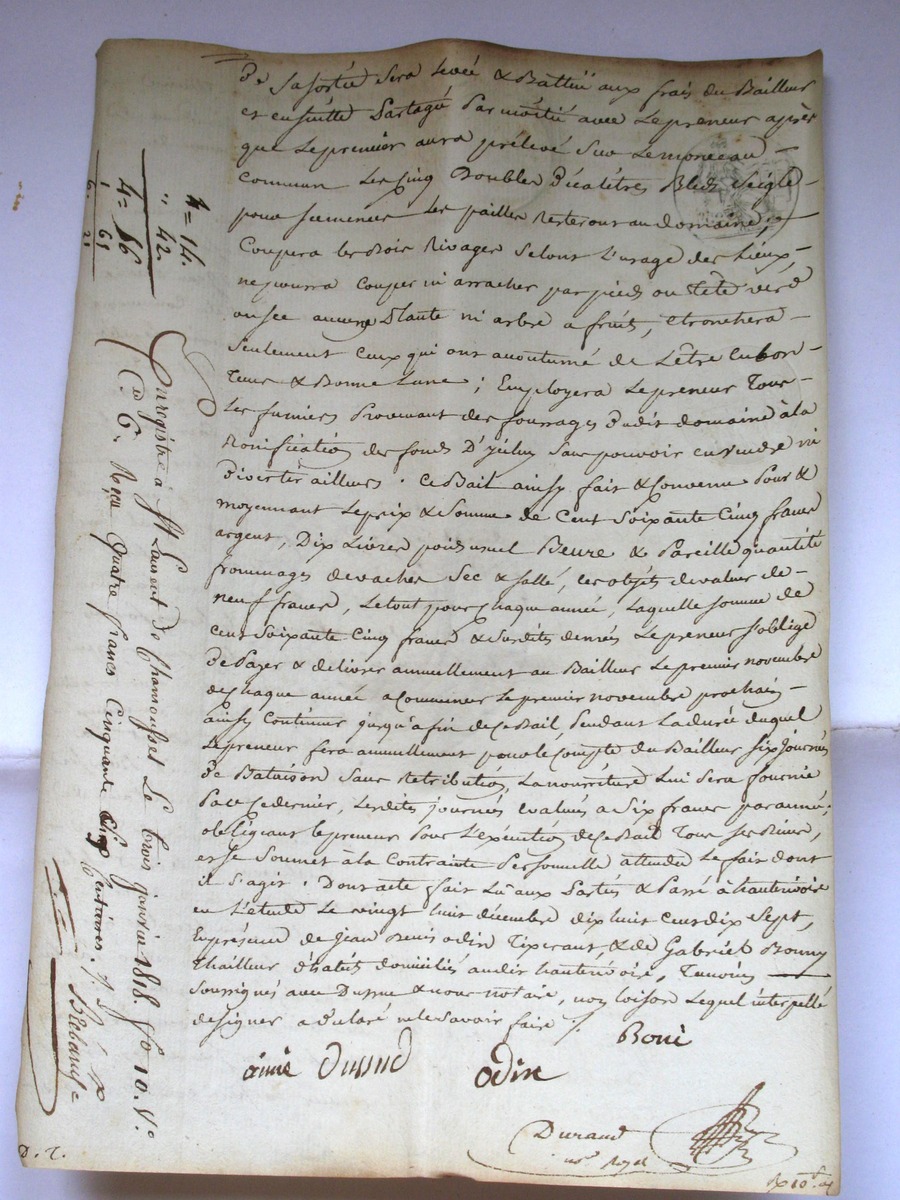 De Sa sortie Sera levée & Battüe aux frais du Bailleur
et ensuitte Partagé Par moitié avec Le preneur après
que Le premier aura prélevé Sur Le monceau
commun Les Cinq Doubles Décalitres Bled Seigle
pour semences Les pailles Resteront au domaine;
Coupera les Bois Rivages Selont L'usage des Lieux,
ne pourra Couper ni arracher par pieds ou Tête verd
ou sec aucune Plante ni arbre a fruits, Etronchera
Seulement Ceux qui ont acoutumé de L'être En bon
Tems & Bonne Lune; Employera Le preneur Tous
Les fumiers Provenant des fourrages Dudit domaine à la
Bonification des fonds D'ycelui Sans pouvoir en vendre ni
Divertir ailleurs. Ce Bail ainsy fait & Convenu Pour &
moyennant Le prix & Somme de Cent Soixante Cinq francs
argent, Dix Livres poids usuel Beure & Pareille quantité
frommages de vaches Sec & sallé, Ces objets de valeur de
neuf francs, Le tout pour chaque année, Laquelle somme de
cent Soixante Cinq francs & Susdites denrés Le preneur s'oblige
De Payer & delivrer annuellement au Bailleur Le premier novembre
de chaque année a Commencer Le premier novembre prochain
ainsy Continuer jusqu'à fin de Ce Bail, Pendant La durée duquel
Le preneur fera annuellement pour le Compte du Bailleur Six journés
De Bataison Sans Retribution, La nourriture Lui Sera fournie
Par Ce dernier, Lesdites journés évalués a Six francs par année;
obligeant le preneur Pour L'exécution de Ce Bail Tous Ses Biens,
et se Soumet à la Contrainte Personnelle attendu Le fait dont
il s'agit. Dont acte fait Lu aux Partés & Passé à hauterivoire
en L'étude Le vingt huit décembre dix huit cent dix Sept,
En présence de Jean Denis odin Tixerant, & de Gabriel Bonny
Thailleur d'habits domiciliés audit hauterivoire, Temoins
Soussignés avec Dussud & nous notaire, non loison Lequel interpellé
de signer a déclaré ne le Savoir faire.
Boni
aimé Dussud odin
Durand
no.re Royal
D. T.
4 = 14.
" 42.
4 = 56
1 65
6. 21
Enregistré à St Laurent de Chamousset Le trois janvier 1818. fo 10. Vo
Ce 6. Reçu quatre francs Cinquante six Centimes.